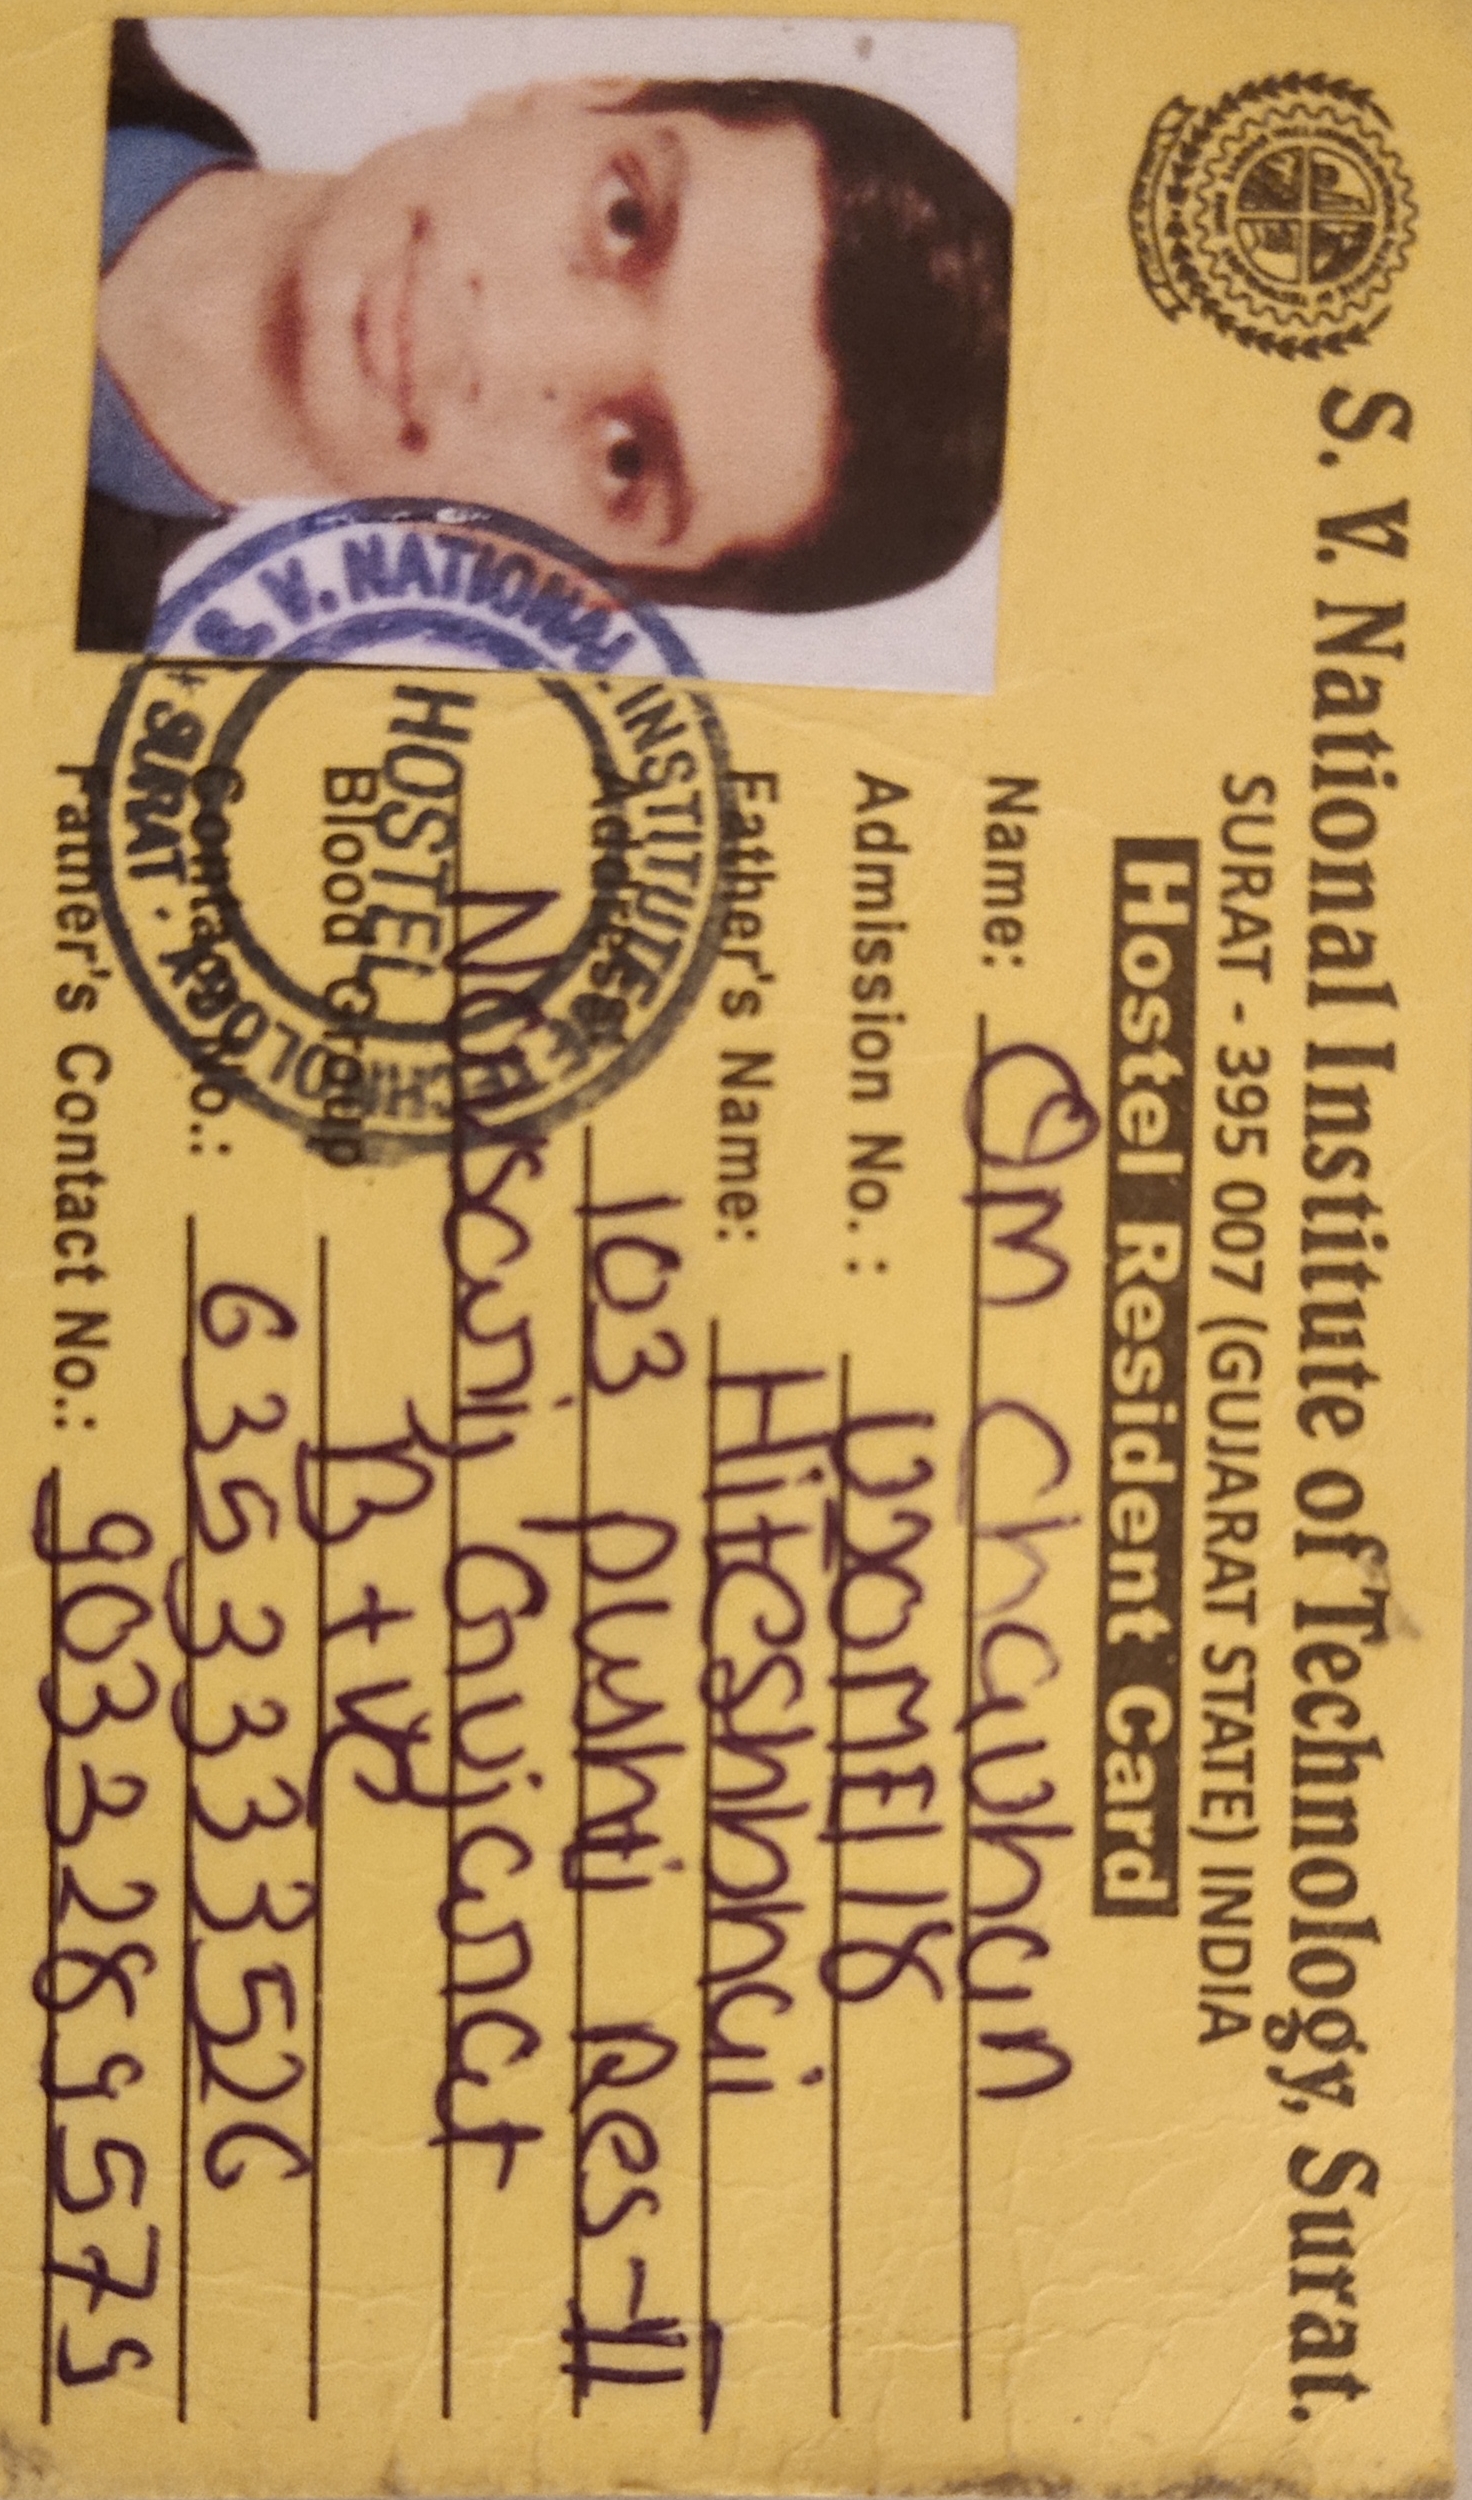 S. V. National Institute of Technology, Surat.
SURAT - 395 007 (GUJARAT STATE) INDIA
Hostel Resident Card
Name: Om Chauhan
Admission No. : U20ME118
Father's Name: Hiteshbhai
Address: 103 pushti Res-II
Navsari, Gujarat
Blood Group B +ve
Contact No.: 6353333526
Father's Contact No.:
S. V. NATIONAL INSTITUTE OF TECHNOLOGY
HOSTEL
SURAT